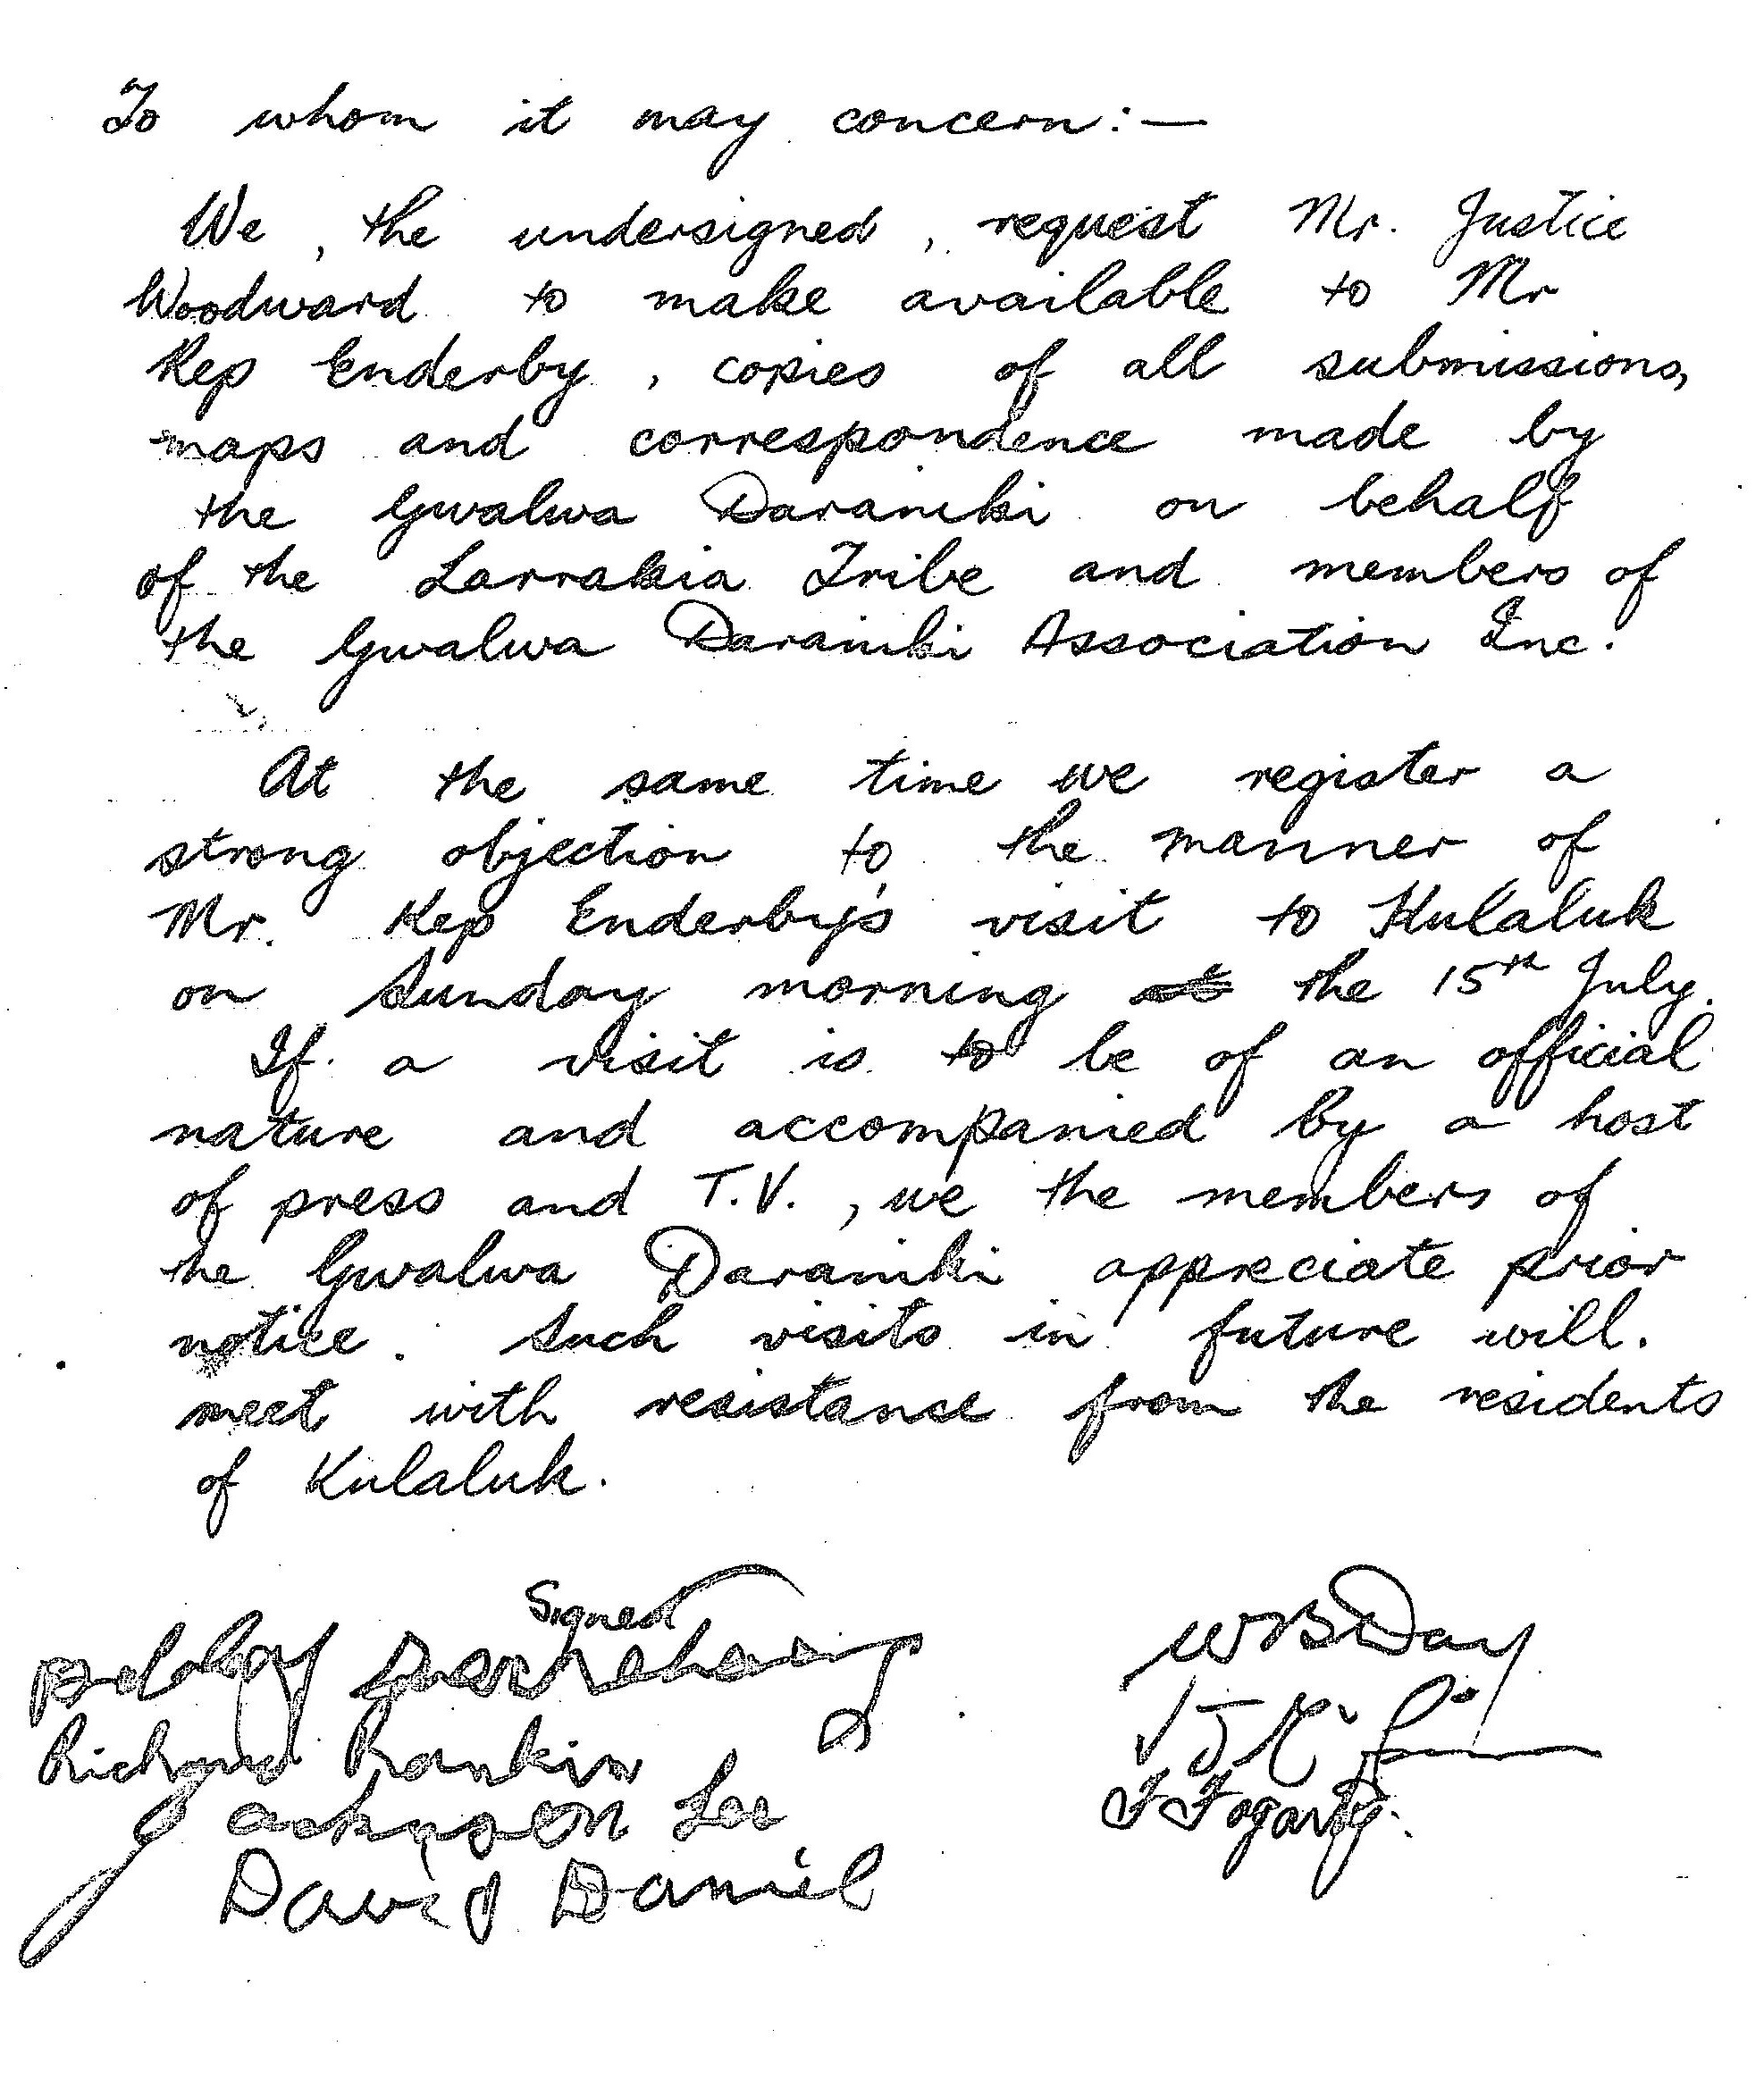 To whom it may concern:—
We, the undersigned, request Mr. Justice
Woodward to make available to Mr
Kep Enderby, copies of all submissions,
maps and correspondence made by
the Gwalwa Daraniki on behalf
of the Larrakia Tribe and members of
the Gwalwa Daraniki Association Inc.
At the same time we register a
strong objection to the manner of
Mr. Kep Enderby's visit to Kulaluk
on Sunday morning the 15th July.
If a visit is to be of an official
nature and accompanied by a host
of press and T.V., we the members of
the Gwalwa Daraniki appreciate prior
notice. Such visits in future will.
meet with resistance from the residents
of Kulaluk.
Signed
WBDay
Richard Rankin
F Fogarty.
David Daniel